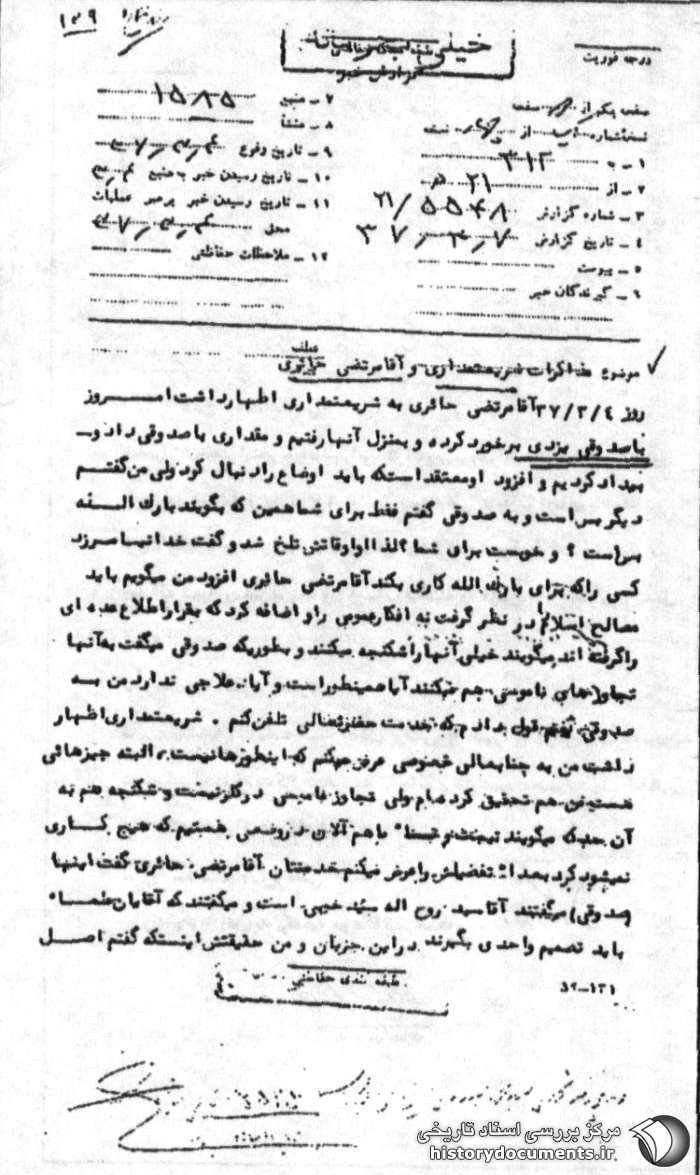 ۱۳۹
خیلی محرمانه
طبقه بندی حفاظتی
گزارش خبر
درجه فوریت
صفحه یکم از صفحه
نسخه شماره از نسخه
۱ – به ۳۱۲
۲ – از ۲۱ ه
۳ – شماره گزارش ۲۱/۵۵۴۸
۴ – تاریخ گزارش ۳۷.۳.۷
۵ – پیوست
۶ – گیرندگان خبر
۷ – منبع ۱۵۸۵
۸ – منشأ
۹ – تاریخ وقوع ۳۷.۳.۴
۱۰ – تاریخ رسیدن خبر به منبع
۱۱ – تاریخ رسیدن خبر برهبر عملیات
محل ۳۷.۳.۴
۱۲ – ملاحظات حفاظتی
موضوع مذاکرات شریعتمداری و آقا مرتضی حائری
روز ۳۷/۳/۴ آقا مرتضی حائری به شریعتمداری اظهار داشت امروز
با صدوقی یزدی برخورد کرده و بمنزل آنها رفتیم و مقداری با صدوقی داد و
بیداد کردیم و افزود او معتقد است که باید اوضاع را دنبال کرد ولی من گفتم
دیگر بس است و به صدوقی گفتم فقط برای شما همین که بگویند بارک الله
بس است ؟ و خوبست برای شما ؟ لذا او اوقاتش تلخ شد و گفت خدا نیامرزد
کسی را که برای بارک الله کاری بکند آقا مرتضی حائری افزود من میگویم باید
مصالح اسلام در نظر گرفت نه افکار عمومی را و اضافه کرد که بقرار اطلاع عده ای
را گرفته اند میگویند خیلی آنها را شکنجه میکنند و بطوریکه صدوقی میگفت به آنها
تجاوزهای ناموسی هم میکنند آیا همینطور است و آیا علاجی ندارد من به
صدوقی قول دادم که خدمت حضرتعالی تلفن کنم . شریعتمداری اظهار
داشت من به جنابعالی خصوصی عرض میکنم که اینطورها نیست ، البته چیزهائی
هست من هم تحقیق کرده ام ولی تجاوز ناموسی در کار نیست و شکنجه هم به
آن حد که میگویند نیست و تقریبا" ما هم الان در وضعی هستیم که هیچ کاری
نمیشود کرد بعدا" تفضیلش را عرض میکنم خدمتتان آقا مرتضی حائری گفت اینها
(صدوقی) میگفتند آقا سید روح اله سید خبی است و میگفتند که آقایان علماء
باید تصمیم واحدی بگیرند در این جریان و من حقیقتش اینستکه گفتم اصل
طبقه بندی حفاظتی
۵۲–۱۳۱
مرکز بررسی اسناد تاریخی
historydocuments.ir